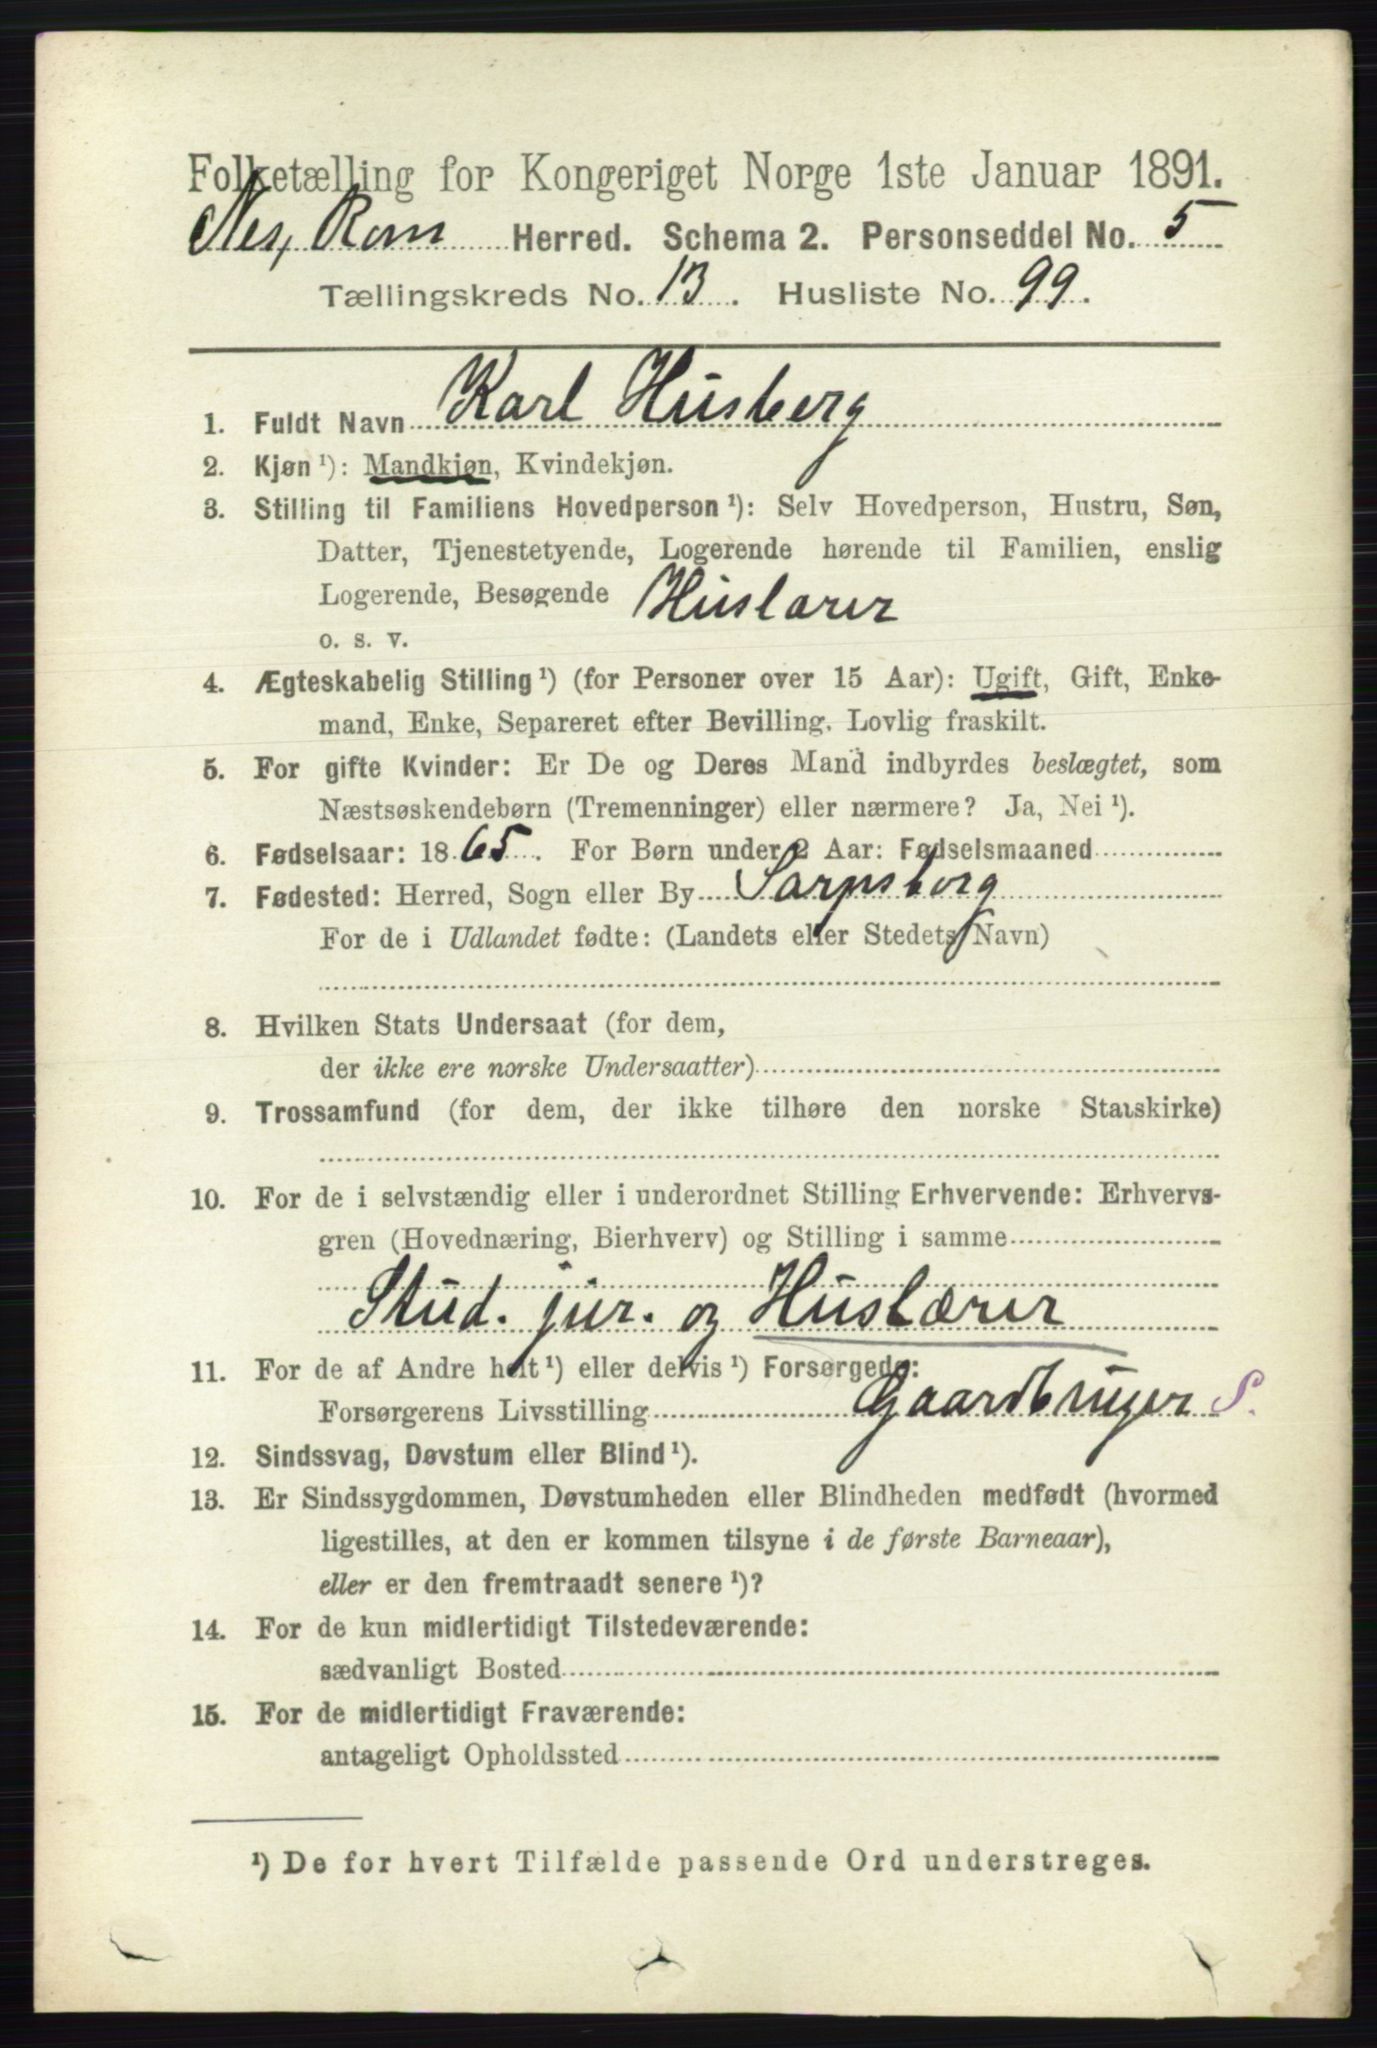 Folketælling for Kongeriget Norge 1ste Januar 1891.
Nes, Rom Herred. Schema 2. Personseddel No. 5
Tællingskreds No. 13. Husliste No. 99.
1. Fuldt Navn Karl Husberg
2. Kjøn ¹): Mandkjøn, Kvindekjøn.
3. Stilling til Familiens Hovedperson ¹): Selv Hovedperson, Hustru, Søn,
Datter, Tjenestetyende, Logerende hørende til Familien, enslig
Logerende, Besøgende Huslærer
o. s. v.
4. Ægteskabelig Stilling ¹) (for Personer over 15 Aar): Ugift, Gift, Enke-
mand, Enke, Separeret efter Bevilling. Lovlig fraskilt.
5. For gifte Kvinder: Er De og Deres Mand indbyrdes beslægtet, som
Næstsøskendebørn (Tremenninger) eller nærmere? Ja, Nei ¹).
6. Fødselsaar: 1865. For Børn under 2 Aar: Fødselsmaaned
7. Fødested: Herred, Sogn eller By Sarpsborg
For de i Udlandet fødte: (Landets eller Stedets Navn)
8. Hvilken Stats Undersaat (for dem,
der ikke ere norske Undersaatter)
9. Trossamfund (for dem, der ikke tilhøre den norske Statskirke)
10. For de i selvstændig eller i underordnet Stilling Erhvervende: Erhvervs-
gren (Hovednæring, Bierhverv) og Stilling i samme
Stud. jur. og Huslærer
11. For de af Andre helt ¹) eller delvis ¹) Forsørgede:
Forsørgerens Livsstilling Gaardbruger S.
12. Sindssvag, Døvstum eller Blind ¹).
13. Er Sindssygdommen, Døvstumheden eller Blindheden medfødt (hvormed
ligestilles, at den er kommen tilsyne i de første Barneaar),
eller er den fremtraadt senere ¹)?
14. For de kun midlertidigt Tilstedeværende:
sædvanligt Bosted
15. For de midlertidigt Fraværende:
antageligt Opholdssted
¹) De for hvert Tilfælde passende Ord understreges.